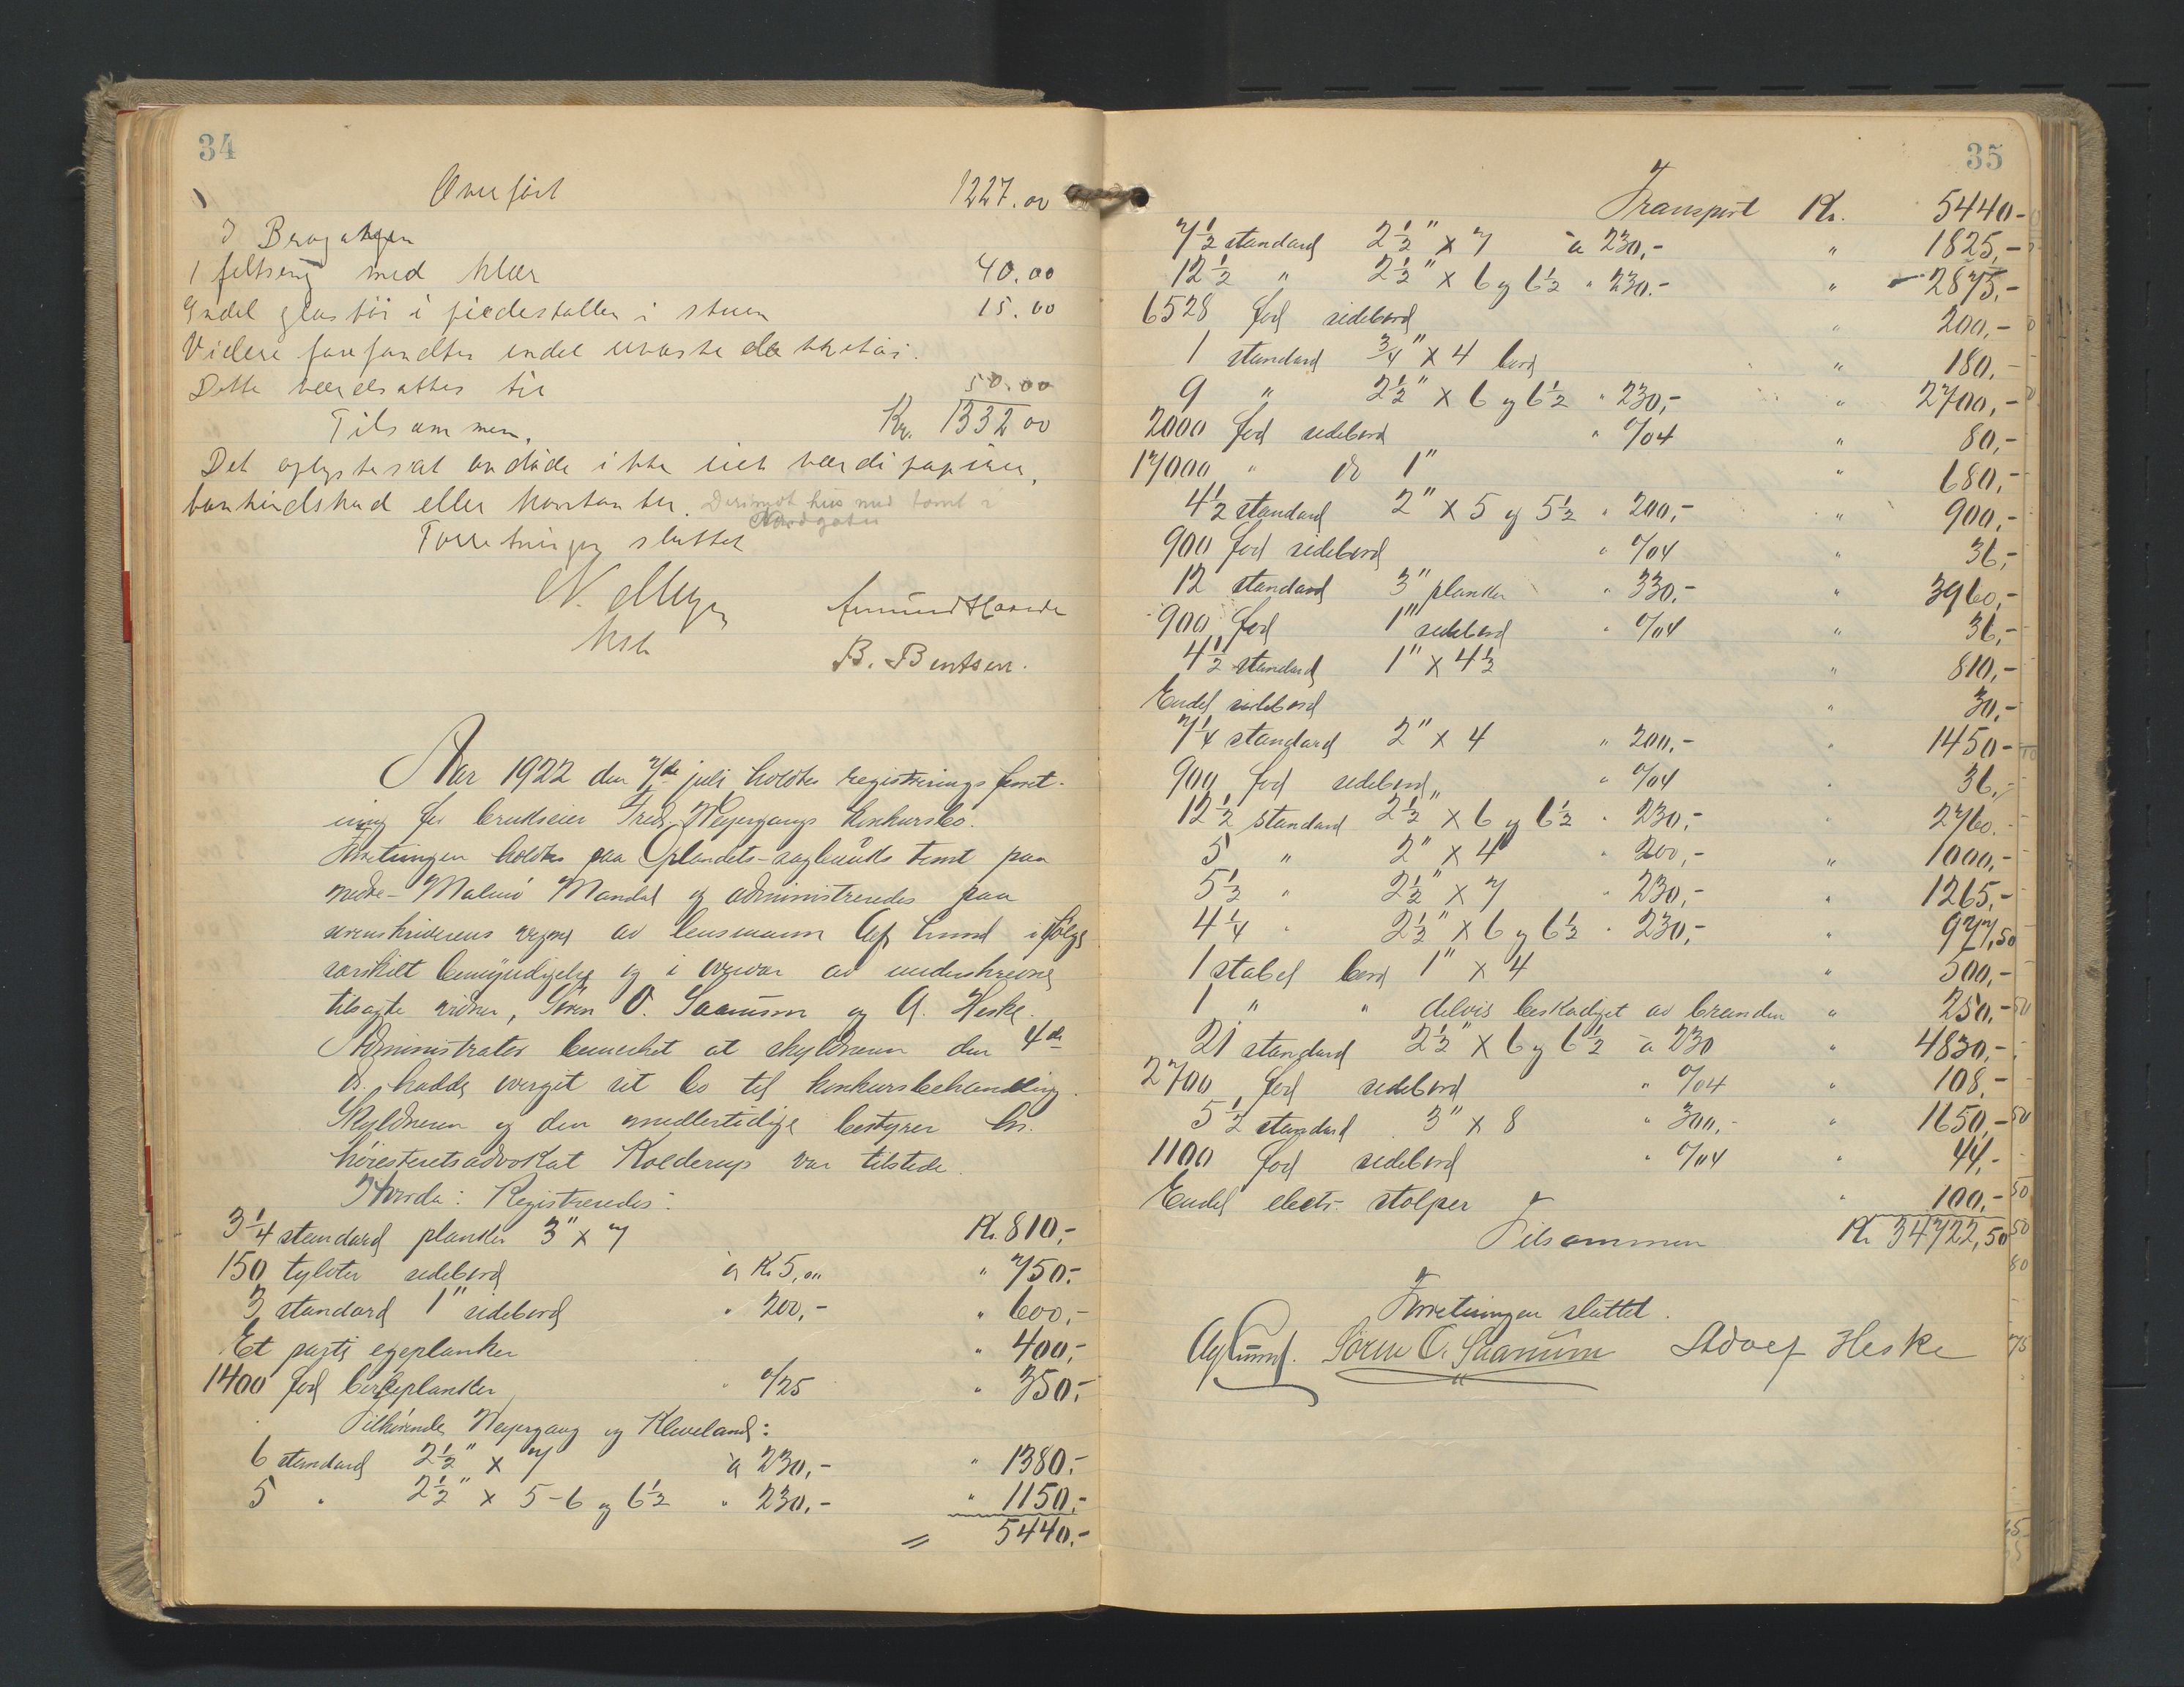 34
Overført 1227.00
I Bryggangen
1 feltseng med klær 40.00
Endel glastøi i piedestallen i stuen 15.00
Videre forefandtes endel uvaske dæktøi.
Dette værdsattes til 50.00
Tilsammen. Kr. 1332 00
Det oplystes at avdøde ikke eiet værdipapirer,
bankindskud eller kontanter. Derimot hus med tomt i
Nordgaten
Forretningen sluttet
N. Meyer
B. Bentsen.
Aar 1922 den 7de juli holdtes registreringsforret-
ning for brukseier Fred. Weyergangs konkursbo.
Forretningen holdtes paa Oplandets-sagbruks tomt paa
nedre-Malmø Mandal og administreredes paa
sorenskriverens vegne av lensmann Aas Lund ifølge
særskilt bemyndigelse og i overvær av underskrevne
tilsagte vidner, Søren O. Saanum og A. Heske.
Administrator bemerket at skyldneren den 4de
ds. hadde overgit sit bo til konkursbehandling.
Skyldneren og den midlertidige bestyrer hr.
høiesteretsadvokat Kolderup var tilstede.
Hvorda: Registreredes:
3 1/4 standard planker 3" x 7 Kr. 810,-
150 tylvter sidebord à Kr 5,00 " 750,-
3 standard 1" sidebord " 200,- " 600,-
Et parti egeplanker " 400,-
1400 fod birkeplanker " 0/25 " 350,-
Tilhørende Weyergang og Kleveland:
6 standard 2 1/2" x 7 à 230,- " 1380,-
5 " 2 1/2" x 5-6 og 6 1/2 " 230,- " 1150,-
= 5440,-
35
Transport Kr. 5440-
7 1/2 standard 2 1/2" x 7 à 230,- " 1825,-
12 1/2 " 2 1/2" x 6 og 6 1/2 " 230.- " 2875,-
6528 fod sidebord " 200,-
1 standard 3/4" x 4 bord " 180,-
9 " 2 1/2" x 6 og 6 1/2 " 230,- " 2700,-
2000 fod sidebord " 0/04 " 80,-
17000 " do 1" " 680,-
4 1/2 standard 2" x 5 og 5 1/2 " 200,- " 900,-
900 fod sidebord " 0/04 " 36,-
12 standard 3" planker " 330,- " 3960,-
900 fod 1" sidebord " 0/04 " 36,-
4 1/2 standard 1" x 4 1/2 " 810,-
Endel sidebord " 30,-
7 1/4 standard 2" x 4 " 200,- " 1450-
900 fod sidebord " 0/04 " 36,-
12 1/2 standard 2 1/2" x 6 og 6 1/2 " 230,- " 2760.-
5 " 2" x 4" " 200,- " 1000,-
5 1/2 " 2 1/2" x 7 " 230,- " 1265,-
4 1/4 " 2 1/2" x 6 og 6 1/2 " 230,- " 977,50
1 stabel bord 1" x 4 " 500,-
1 " " delvis beskadiget av branden " 250,-
21 standard 2 1/2" x 6 og 6 1/2 à 230 " 4830,-
2700 fod sidebord " 0/04 " 108,-
5 1/2 standard 3" x 8 " 300,- " 1650,-
1100 fod sidebord " 0/04 " 44,-
Endel electr. stolper " 100,-
Tilsammen Kr 34722,50
Forretningen sluttet.
Aas Lund. Søren O. Saanum Adolf Heske